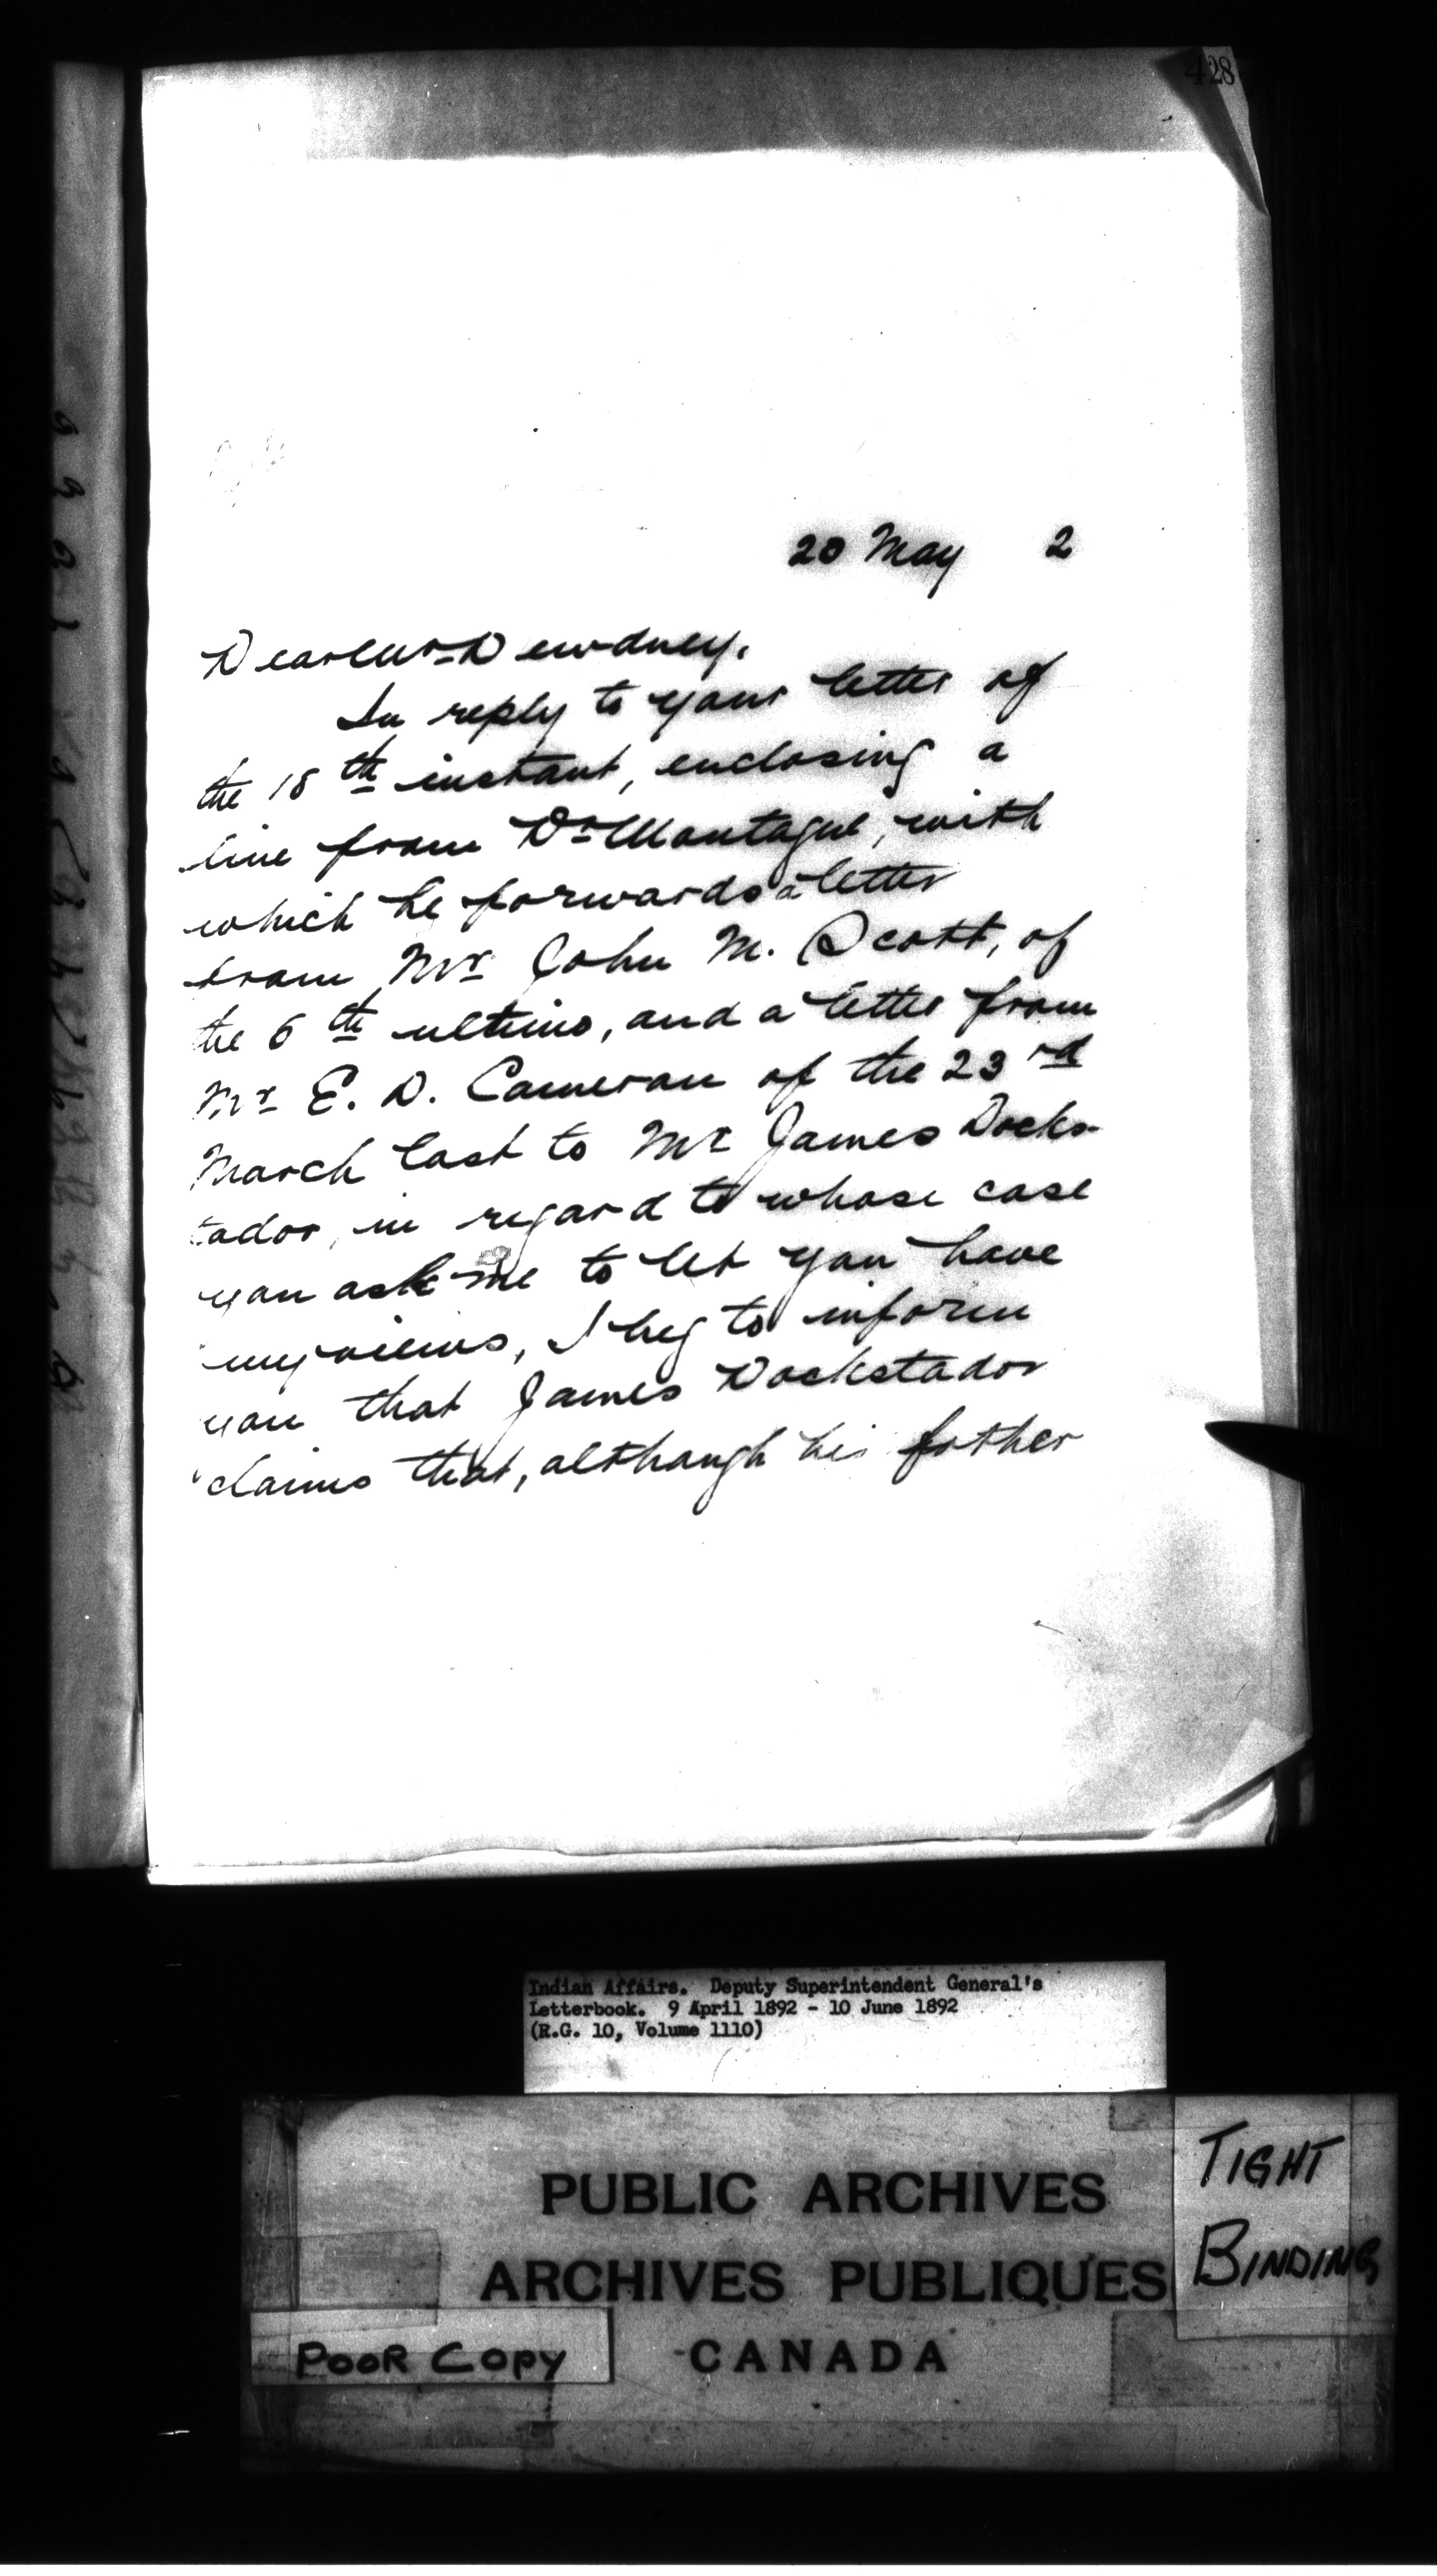 428
20 May 2
Dear Mr Dewdney,
In reply to your letter of
the 18th instant, enclosing a
line from Dr Montague, with
which he forwards a letter
from Mr John M. Scott, of
the 6th ultimo, and a letter from
Mr E. D. Cameron of the 23rd
March last to Mr James Docks-
tador, in regard to whose case
you ask me to let you have
my views, I beg to inform
you that James Dockstador
claims that, although his father
Indian Affairs. Deputy Superintendent General's
Letterbook. 9 April 1892 - 10 June 1892
(R.G. 10, Volume 1110)
PUBLIC ARCHIVES
ARCHIVES PUBLIQUES
CANADA
TIGHT
BINDING
POOR COPY